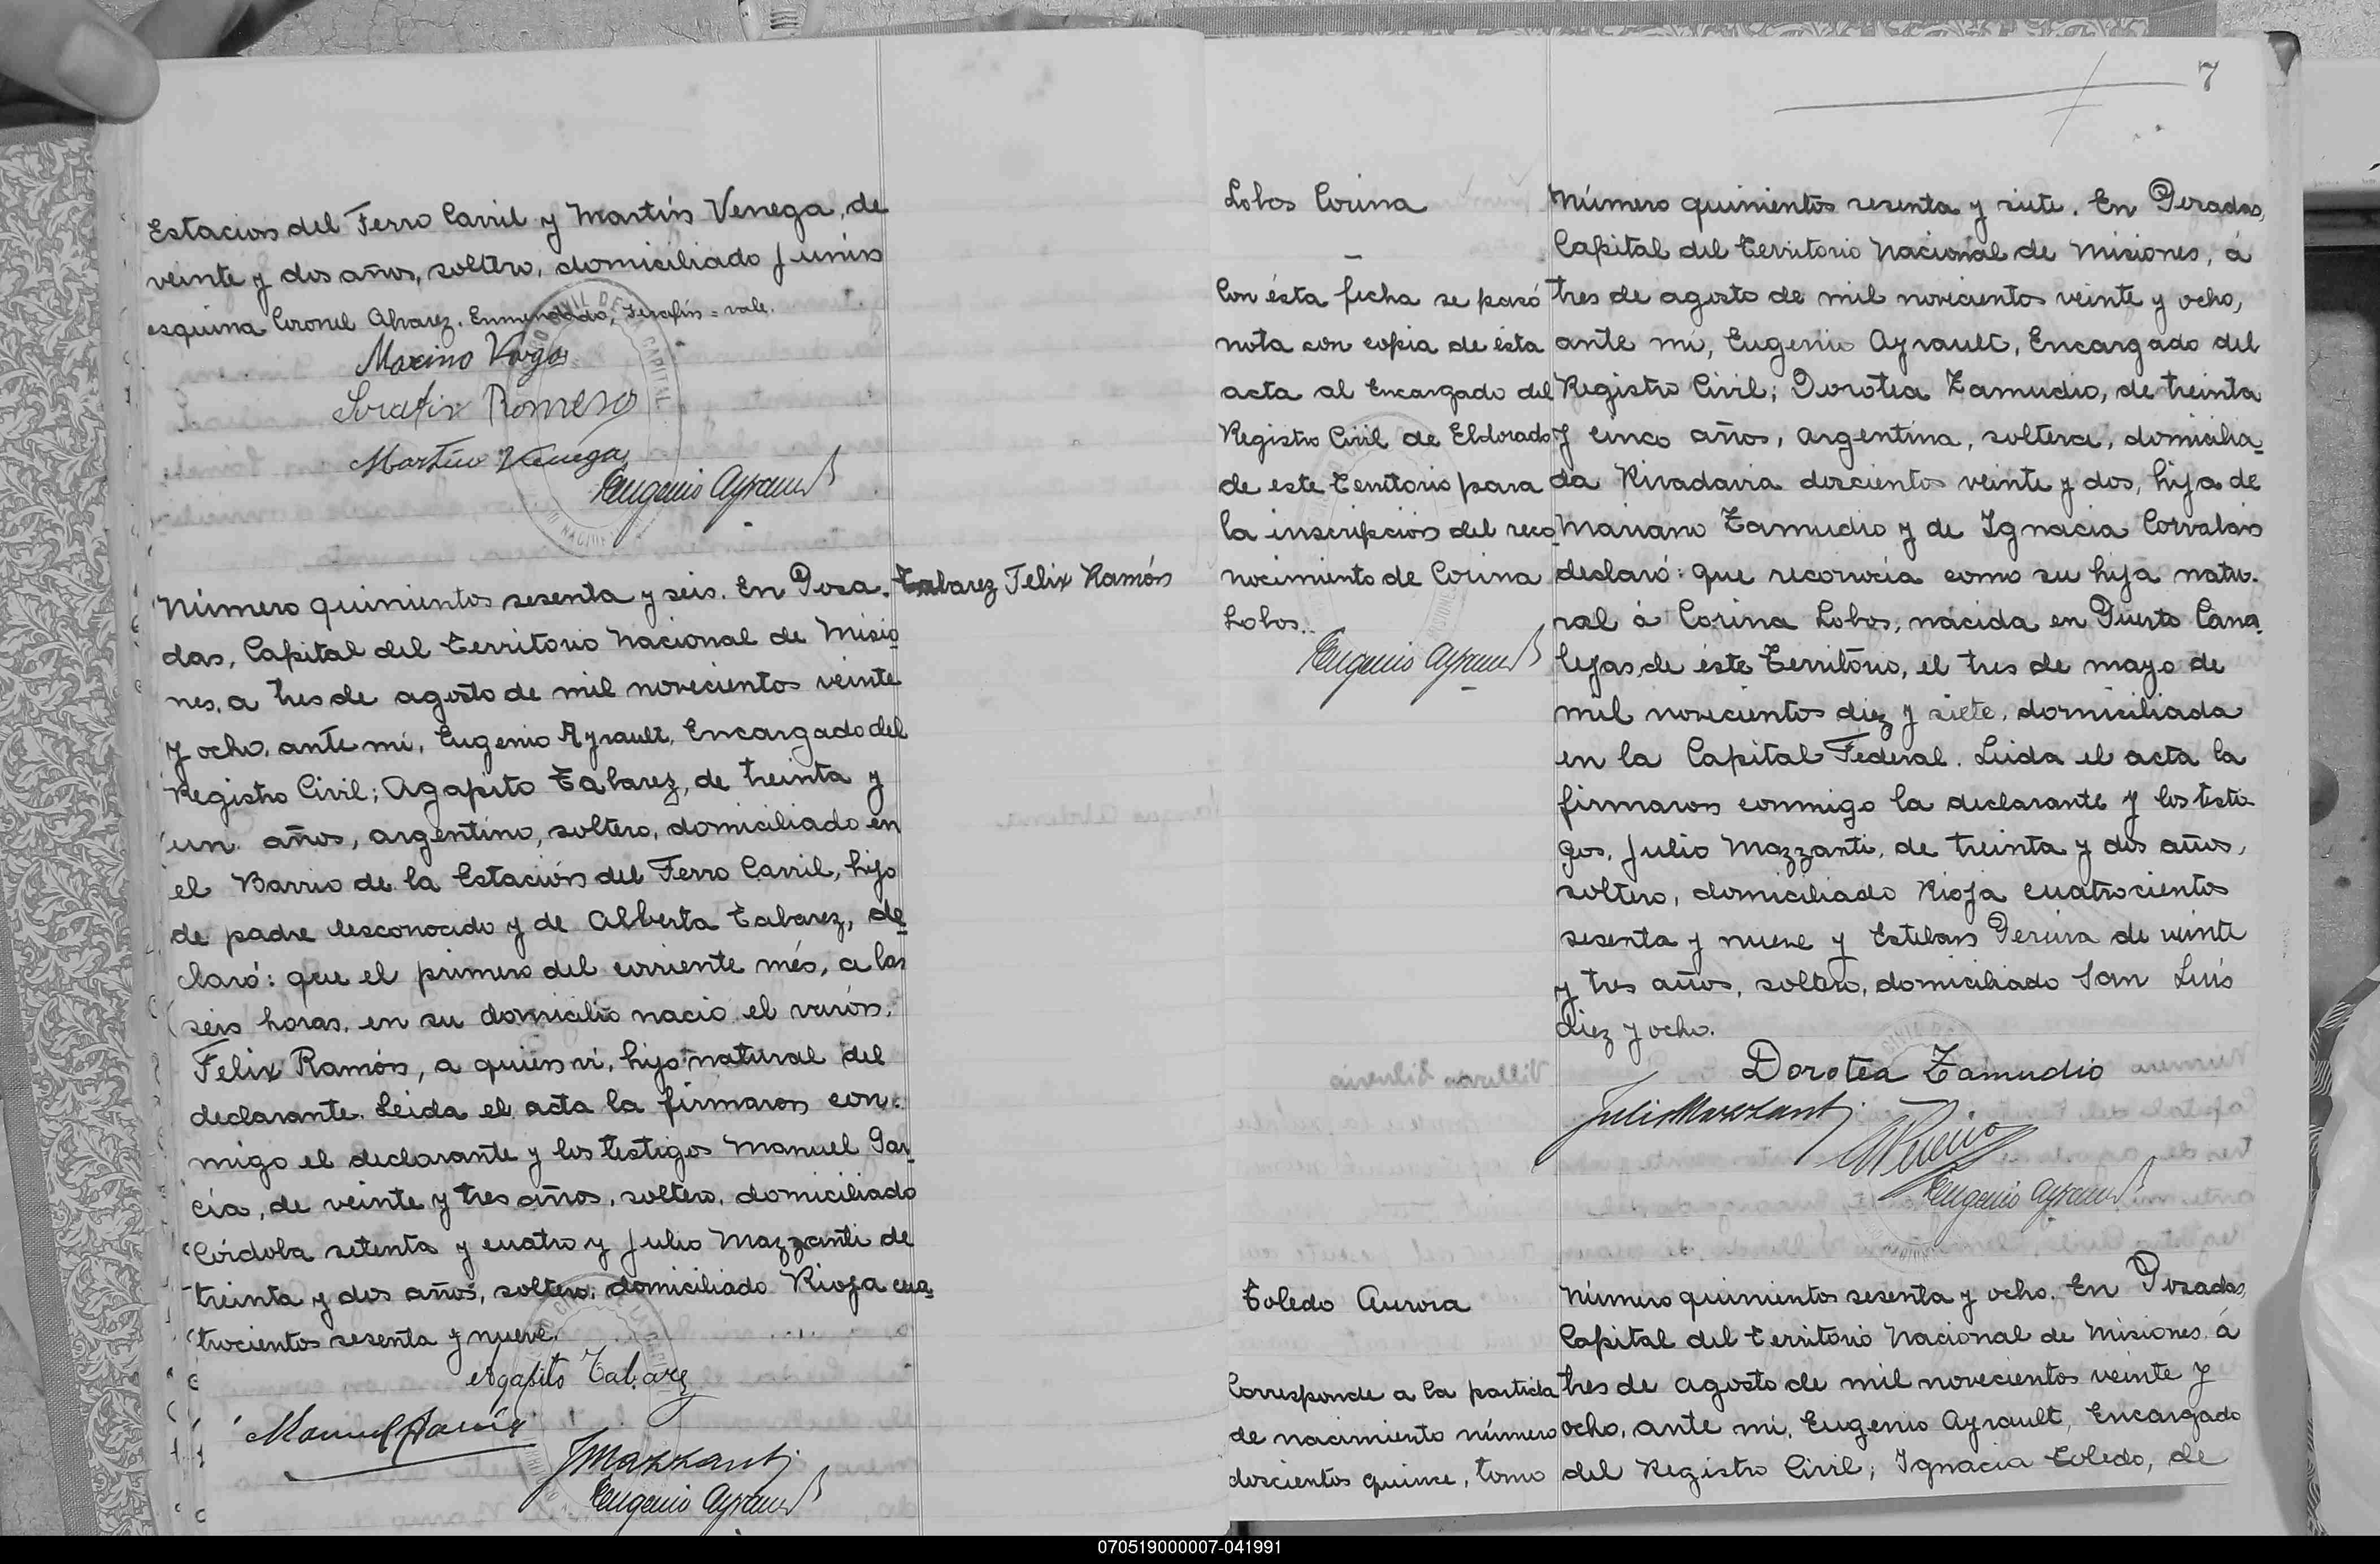 Estacion del Ferro Carril y Martín Venega, de
veinte y dos años, soltero, domiciliado Junin
esquina Coronel Alvarez. Enmendado, Serafín = vale.
Maximo Vargas
Serafin Romero
Martin Venega
Eugenio Ayrault
Número quinientos sesenta y seis. En Posa-
das, Capital del Territorio Nacional de Misio
nes, a tres de agosto de mil novecientos veinte
y ocho, ante mi, Eugenio Ayrault, Encargado del
Registro Civil; Agapito Tabarez, de treinta y
un años, argentino, soltero, domiciliado en
el Barrio de la Estación del Ferro Carril, hijo
de padre desconocido y de Alberta Tabarez, de
claró: que el primero del corriente més, a las
seis horas, en su domicilio nació el varón,
Felix Ramón, a quien vi, hijo natural del
declarante. Leida el acta la firmaron con-
migo el declarante y los testigos Manuel Gar
cía, de veinte y tres años, soltero, domiciliado
Córdoba setenta y cuatro y Julio Mazzanti de
treinta y dos años, soltero, domiciliado Rioja cua
trocientos sesenta y nueve.
Agapito Tabarez
Manuel García
JMazzanti
Eugenio Ayrault
Tabarez Felix Ramón
7
Lobos Corina
Con ésta fecha se pasó
nota con copia de ésta
acta al Encargado del
Registro Civil de Eldorado
de este Territorio para
la inscripción del reco
nocimiento de Corina
Lobos.
Eugenio Ayrault
Número quinientos sesenta y siete. En Posadas,
Capital del Territorio Nacional de Misiones, á
tres de agosto de mil novecientos veinte y ocho,
ante mi, Eugenio Ayrault, Encargado del
Registro Civil; Dorotea Zamudio, de treinta
y cinco años, argentina, soltera, domicilia
da Rivadavia doscientos veinte y dos, hija de
Mariano Zamudio y de Ignacia Corvalan
declaró: que reconocía como su hija natu-
ral á Corina Lobos, nácida en Puerto Cana
lejas, de éste Territorio, el tres de mayo de
mil novecientos diez y siete, domiciliada
en la Capital Federal. Leida el acta la
firmaron conmigo la declarante y los testi-
gos, Julio Mazzanti, de treinta y dos años,
soltero, domiciliado Rioja cuatrocientos
sesenta y nueve y Esteban Pereira de veinte
y tres años, soltero, domiciliado San Luis
diez y ocho.
Dorotea Zamudio
Julio Mazzanti
Eugenio Ayrault
Toledo Aurora
Corresponde a la partida
de nacimiento número
doscientos quince, tomo
Número quinientos sesenta y ocho. En Posadas,
Capital del Territorio Nacional de Misiones á
tres de agosto de mil novecientos veinte y
ocho, ante mi, Eugenio Ayrault, Encargado
del Registro Civil; Ignacia Toledo, de
070519000007-041991